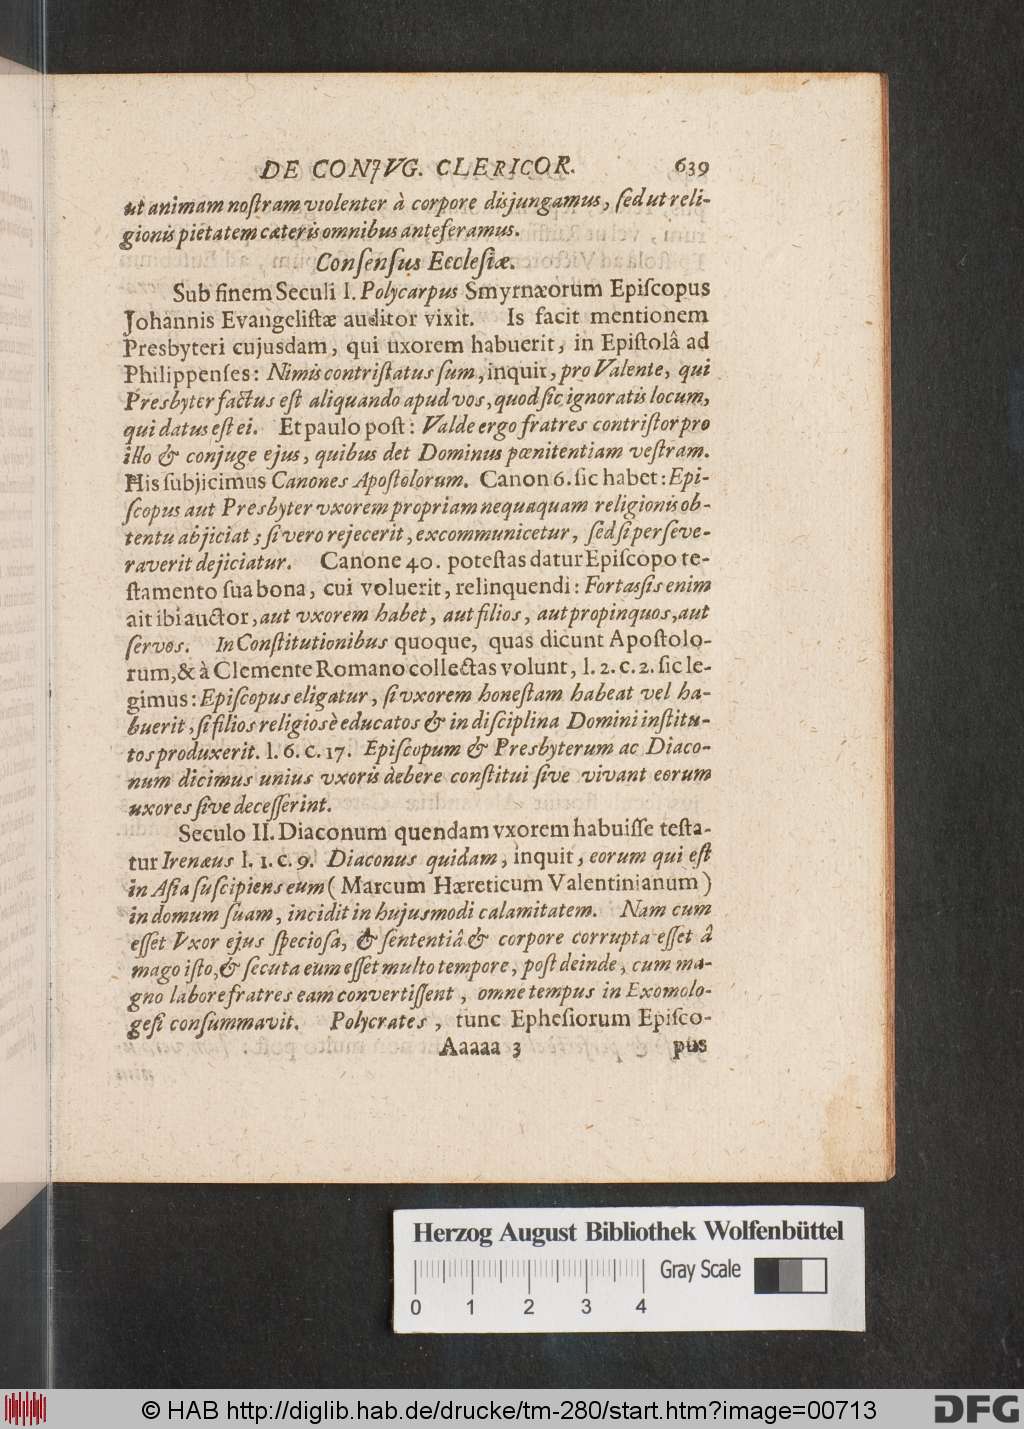 DE CONJVG. CLERICOR. 639
ut animam noſtram violenter à corpore disjungamus, ſed ut reli-
gionis pietatem cæteris omnibus anteferamus.
Conſenſus Eccleſiæ.
Sub finem Seculi I. Polycarpus Smyrnæorum Epiſcopus
Johannis Evangeliſtæ auditor vixit. Is facit mentionem
Presbyteri cujusdam, qui uxorem habuerit, in Epiſtolâ ad
Philippenſes: Nimis contriſtatus ſum, inquit, pro Valente, qui
Presbyter factus eſt aliquando apud vos, quod ſic ignoratis locum,
qui datus eſt ei. Et paulo poſt: Valde ergo fratres contriſtor pro
illo & conjuge ejus, quibus det Dominus pœnitentiam veſtram.
His ſubjicimus Canones Apoſtolorum. Canon 6. ſic habet: Epi-
ſcopus aut Presbyter vxorem propriam nequaquam religionis ob-
tentu abjiciat; ſi vero rejecerit, excommunicetur, ſed ſi perſeve-
raverit dejiciatur. Canone 40. poteſtas datur Epiſcopo te-
ſtamento ſua bona, cui voluerit, relinquendi: Fortaſſis enim
ait ibi auctor, aut vxorem habet, aut filios, aut propinquos, aut
ſervos. In Conſtitutionibus quoque, quas dicunt Apoſtolo-
rum, & à Clemente Romano collectas volunt, l. 2. c. 2. ſic le-
gimus: Epiſcopus eligatur, ſi vxorem honeſtam habeat vel ha-
buerit, ſi filios religiosè educatos & in diſciplina Domini inſtitu-
tos produxerit. l. 6. c. 17. Epiſcopum & Presbyterum ac Diaco-
num dicimus unius vxoris debere conſtitui ſive vivant eorum
uxores ſive deceſſerint.
Seculo II. Diaconum quendam vxorem habuiſſe teſta-
tur Irenæus l. 1. c. 9. Diaconus quidam, inquit, eorum qui eſt
in Aſia ſuſcipiens eum (Marcum Hæreticum Valentinianum)
in domum ſuam, incidit in hujusmodi calamitatem. Nam cum
eſſet Vxor ejus ſpecioſa, & ſententiâ & corpore corrupta eſſet â
mago iſto, & ſecuta eum eſſet multo tempore, poſt deinde, cum ma-
gno labore fratres eam convertiſſent, omne tempus in Exomolo-
geſi conſummavit. Polycrates, tunc Epheſiorum Epiſco-
Aaaaa 3 pus
Herzog August Bibliothek Wolfenbüttel
Gray Scale
0 1 2 3 4
© HAB http://diglib.hab.de/drucke/tm-280/start.htm?image=00713
DFG